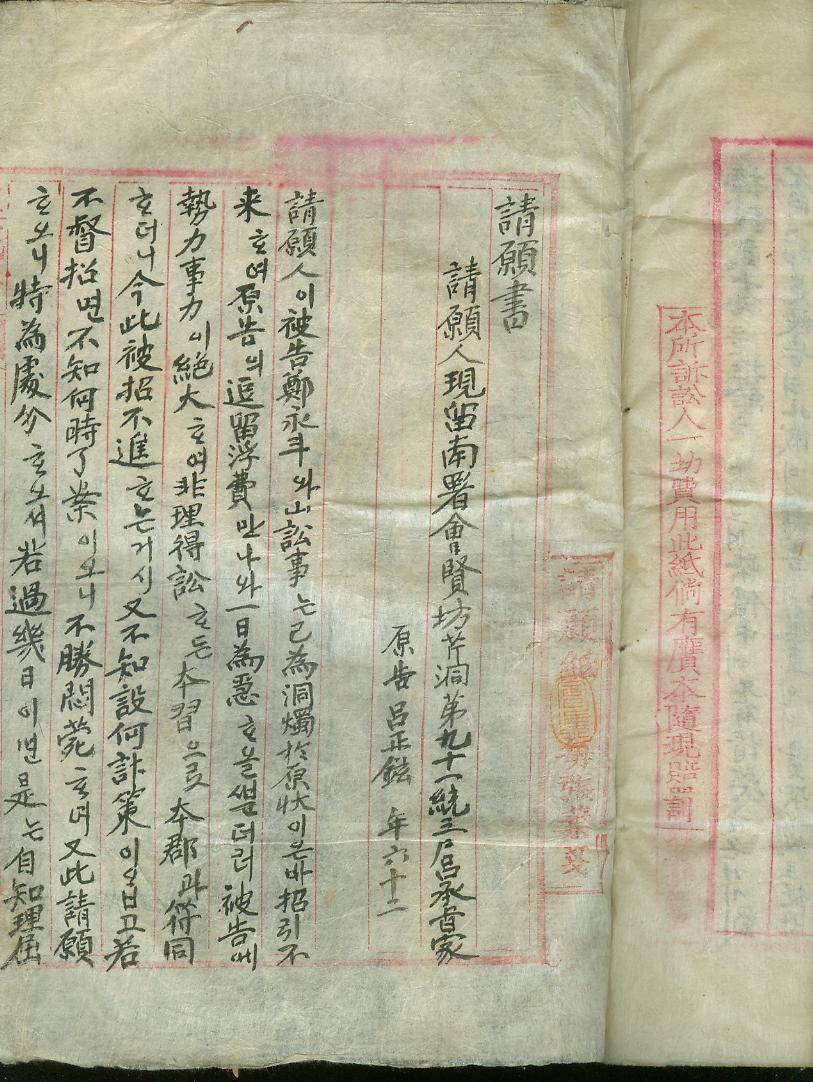 本所訴訟人一切費用此紙倘有贋本隨現照罰
請願紙
請願書
請願人現留南署會賢坊芹洞第九十一統三戶呂承
原告呂正鉉 年六十二
請願人이被告鄭永斗와山訟事는已為洞燭於原狀이온바招引不
来ᄒᆞ여原告의逗留浮費만나와一日為悶ᄒᆞ올ᄲᅮᆫ더러被告에
勢力事力이絶大ᄒᆞ여非理得訟ᄒᆞ든本習으로本郡과符同
ᄒᆞ더니今此被招不進ᄒᆞ는거시又不知設何計策이옵고若
不督招면不知何時了案이오니不勝悶菀ᄒᆞ여又此請願
ᄒᆞ오니特為處分ᄒᆞ오셔若過幾日이면是는自知理屈